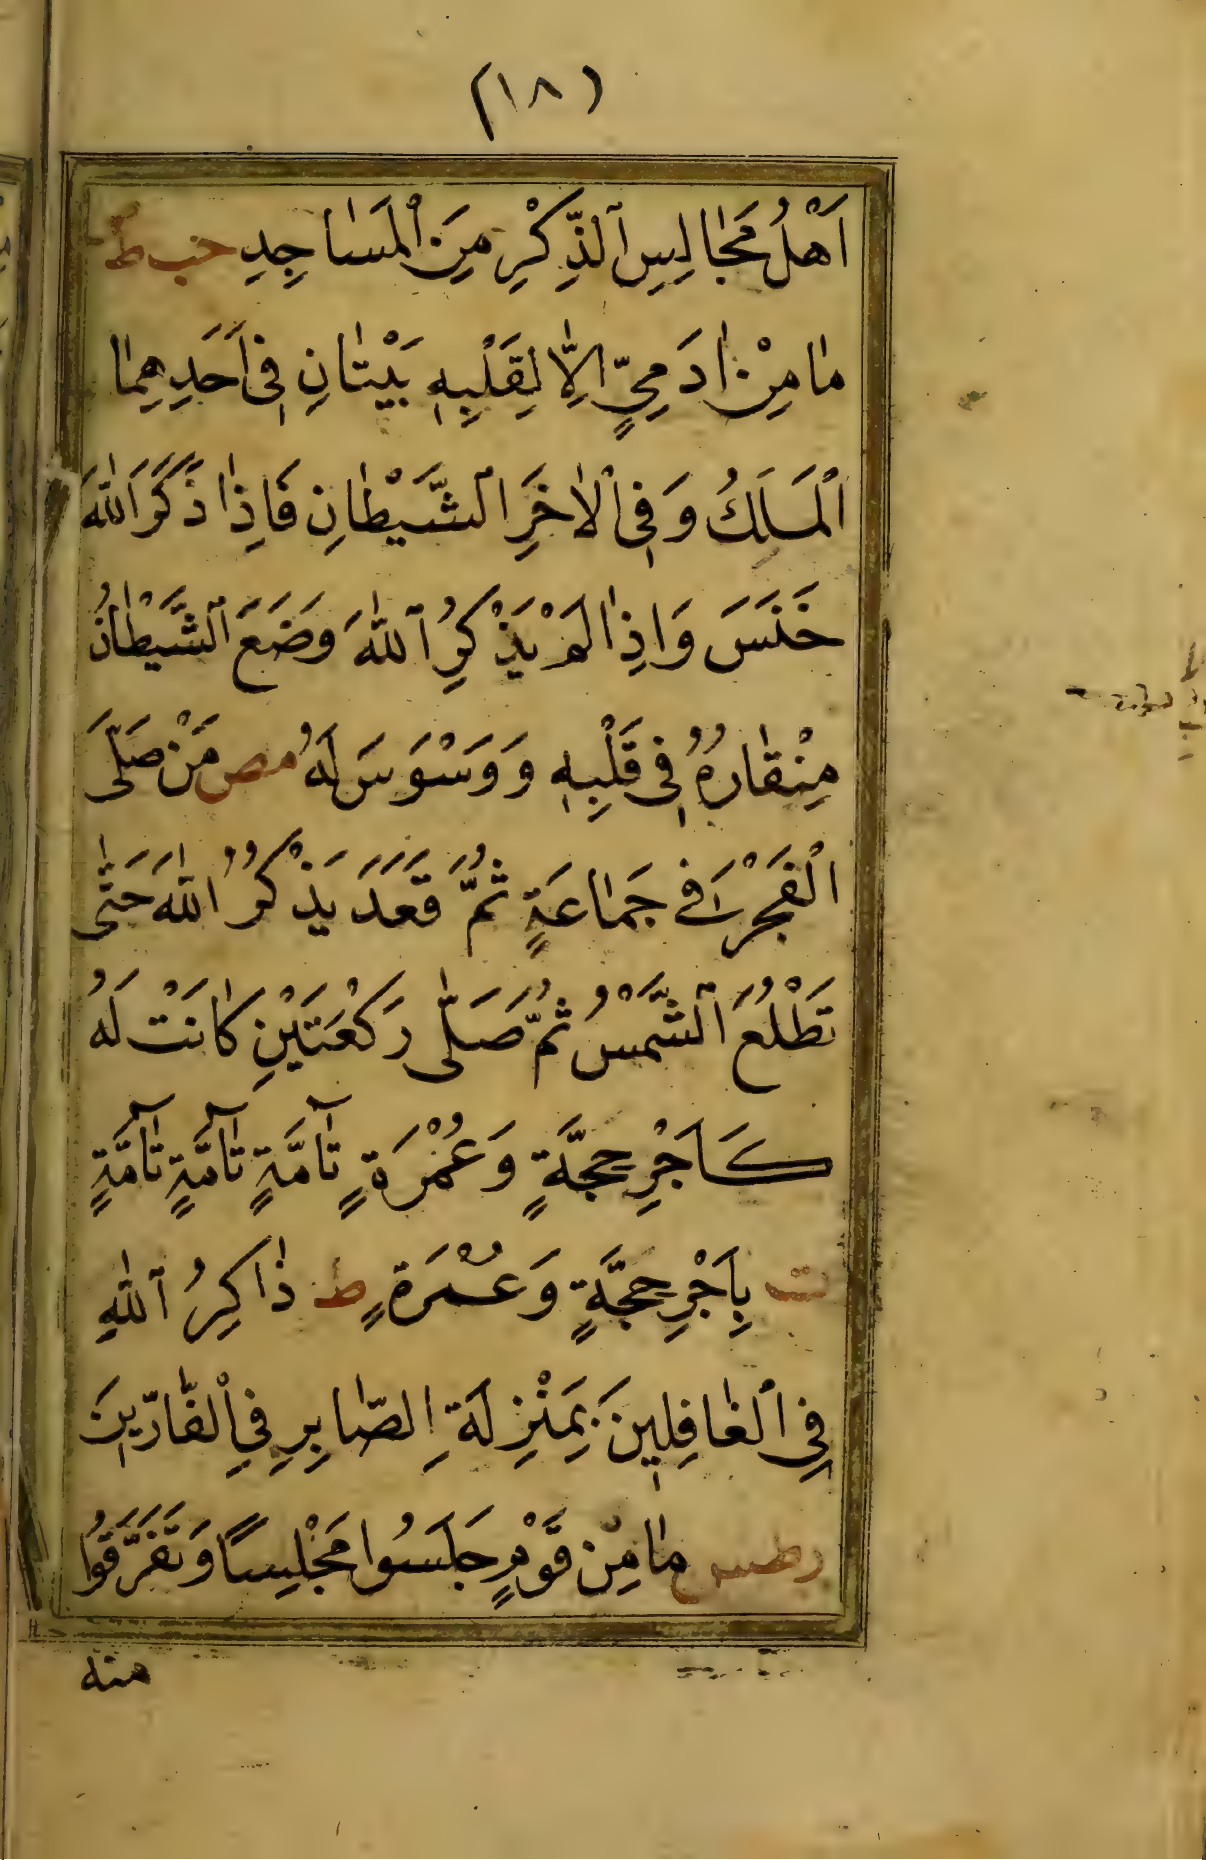 (١٨)
اَهْلُ مَجَالِسِ ٱلذِّكْرِ مِنَ ٱلْمَسَاجِدِ حب ط
مَا مِنْ اٰدَمِيٍّ اِلَّا لِقَلْبِهٖ بَيْتَانِ فِى اَحَدِهِمَا
ٱلْمَلَكُ وَفِى ٱلْاٰخَرِ ٱلشَّيْطَانِ فَاِذَا ذَكَرَ اللّٰهَ
خَنَسَ وَاِذَا لَمْ يَذْكُرِ ٱللّٰهَ وَضَعَ ٱلشَّيْطَانُ
مِنْقَارُهُ فِى قَلْبِهٖ وَوَسْوَسَ لَهُ مص مَنْ صَلَّى
الْفَجْرَ فِى جَمَاعَةٍ ثُمَّ قَعَدَ يَذْكُرُ اللّٰهَ حَتّٰى
تَطْلُعَ ٱلشَّمْسُ ثُمَّ صَلّٰى رَكْعَتَيْنِ كَانَتْ لَهُ
كَاَجْرِ حَجَّةٍ وَعُمْرَةٍ تَآمَّةٍ تَآمَّةٍ تَآمَّةٍ
ت بِاَجْرِ حَجَّةٍ وَعُمْرَةٍ ط ذَاكِرُ ٱللّٰهِ
فِى ٱلْغَافِلِينَ بِمَنْزِلَةِ الصَّابِرِ فِى ٱلْفَارِّينَ
ر ط مَا مِنْ قَوْمٍ جَلَسُوا مَجْلِسًا وَتَفَرَّقُوا
منه